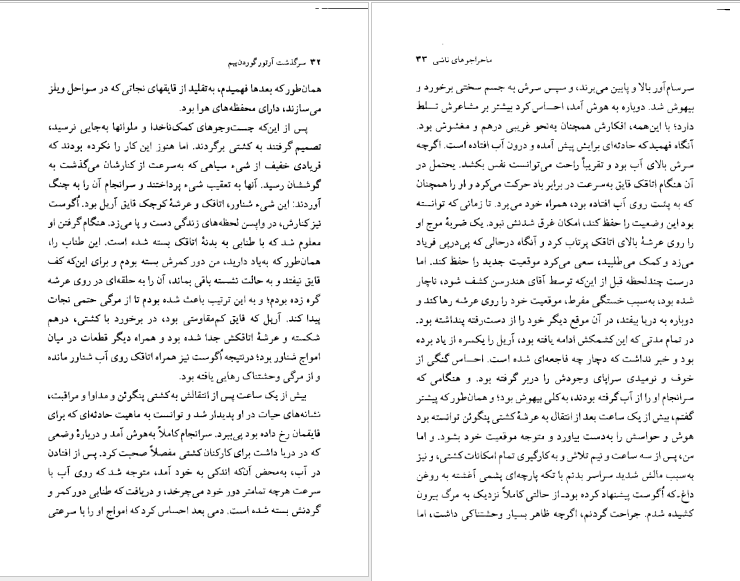 ۳۲ سرگذشت آرتور گوردن پیم
همان‌طور که بعدها فهمیدم، به‌تقلید از قایقهای نجاتی که در سواحل ویلز
می‌سازند، دارای محفظه‌های هوا بود.
پس از این‌که جست‌وجوهای کمک‌ناخدا و ملوانها به‌جایی نرسید،
تصمیم گرفتند به کشتی برگردند. اما هنوز این کار را نکرده بودند که
فریادی خفیف از شیء سیاهی که به‌سرعت از کنارشان می‌گذشت به
گوششان رسید. آنها به تعقیب شیء پرداختند و سرانجام آن را به چنگ
آوردند: این شیء شناور، اتاقک و عرشهٔ کوچک قایق آریل بود. اُگوست
نیز کنارش، در واپسین لحظه‌های زندگی دست و پا می‌زد. هنگام گرفتن او
معلوم شد که با طنابی به بدنهٔ اتاقک بسته شده است. این طناب را،
همان‌طور که به‌یاد دارید، من دور کمرش بسته بودم و برای این‌که کف
قایق نیفتد و به حالت نشسته باقی بماند، آن را به حلقه‌ای در روی عرشه
گره زده بودم؛ و به این ترتیب باعث شده بودم تا از مرگی حتمی نجات
پیدا کند. آریل که قایق کم‌مقاومتی بود، در برخورد با کشتی، درهم
شکسته و عرشهٔ اتاقکش جدا شده بود و همراه دیگر قطعات در میان
امواج شناور بود؛ درنتیجه اُگوست نیز همراه اتاقک روی آب شناور مانده
و از مرگی وحشتناک رهایی یافته بود.
بیش از یک ساعت پس از انتقالش به کشتی پنگوئن و مداوا و مراقبت،
نشانه‌های حیات در او پدیدار شد و توانست به ماهیت حادثه‌ای که برای
قایقمان رخ داده بود پی‌ببرد. سرانجام کاملاً به‌هوش آمد و دربارهٔ وضعی
که در دریا داشت برای کارکنان کشتی مفصلاً صحبت کرد. پس از افتادن
در آب، به‌محض آن‌که اندکی به خود آمد، متوجه شد که روی آب با
سرعت هرچه تمامتر دور خود می‌چرخد، و دریافت که طنابی دور کمر و
گردنش بسته شده است. دمی بعد احساس کرد که امواج او را با سرعتی
ماجراجوهای ناشی ۳۳
سرسام‌آور بالا و پایین می‌برند، و سپس سرش به جسم سختی برخورد و
بیهوش شد. دوباره به هوش آمد، احساس کرد بیشتر بر مشاعرش تسلط
دارد؛ با این‌همه، افکارش همچنان به‌نحو غریبی درهم و مغشوش بود.
آنگاه فهمید که حادثه‌ای برایش پیش آمده و درون آب افتاده است. اگرچه
سرش بالای آب بود و تقریباً راحت می‌توانست نفس بکشد. یحتمل در
آن هنگام اتاقک قایق به‌سرعت در برابر باد حرکت می‌کرد و او را همچنان
که به پشت روی آب افتاده بود، همراه خود می‌برد. تا زمانی که توانسته
بود این وضعیت را حفظ کند، امکان غرق شدنش نبود. یک ضربهٔ موج او
را روی عرشهٔ بالای اتاقک پرتاب کرد و آنگاه درحالی که پی‌درپی فریاد
می‌زد و کمک می‌طلبید، سعی می‌کرد موقعیت جدید را حفظ کند. اما
درست چندلحظه قبل از این‌که توسط آقای هندرسن کشف شود، ناچار
شده بود، به‌سبب خستگی مفرط، موقعیت خود را روی عرشه رها کند و
دوباره به دریا بیفتد، در آن موقع دیگر خود را از دست‌رفته پنداشته بود.
در تمام مدتی که این کشمکش ادامه یافته بود، آریل را یکسره از یاد برده
بود و خبر نداشت که دچار چه فاجعه‌ای شده است. احساس گنگی از
خوف و نومیدی سراپای وجودش را دربر گرفته بود. و هنگامی که
سرانجام او را از آب گرفته بودند، به‌کلی بیهوش بود؛ و همان‌طور که پیشتر
گفتم، بیش از یک ساعت بعد از انتقال به عرشهٔ کشتی پنگوئن توانسته بود
هوش و حواسش را به‌دست بیاورد و متوجه موقعیت خود بشود. و اما
من، پس از سه ساعت و نیم تلاش و به‌کارگیری تمام امکانات کشتی، و نیز
به‌سبب مالش شدید سراسر بدنم با تکه پارچه‌ای پشمی آغشته به روغن
داغ‌ـ که اُگوست پیشنهاد کرده بودـ از حالتی کاملاً نزدیک به مرگ بیرون
کشیده شدم. جراحت گردنم، اگرچه ظاهر بسیار وحشتناکی داشت، اما